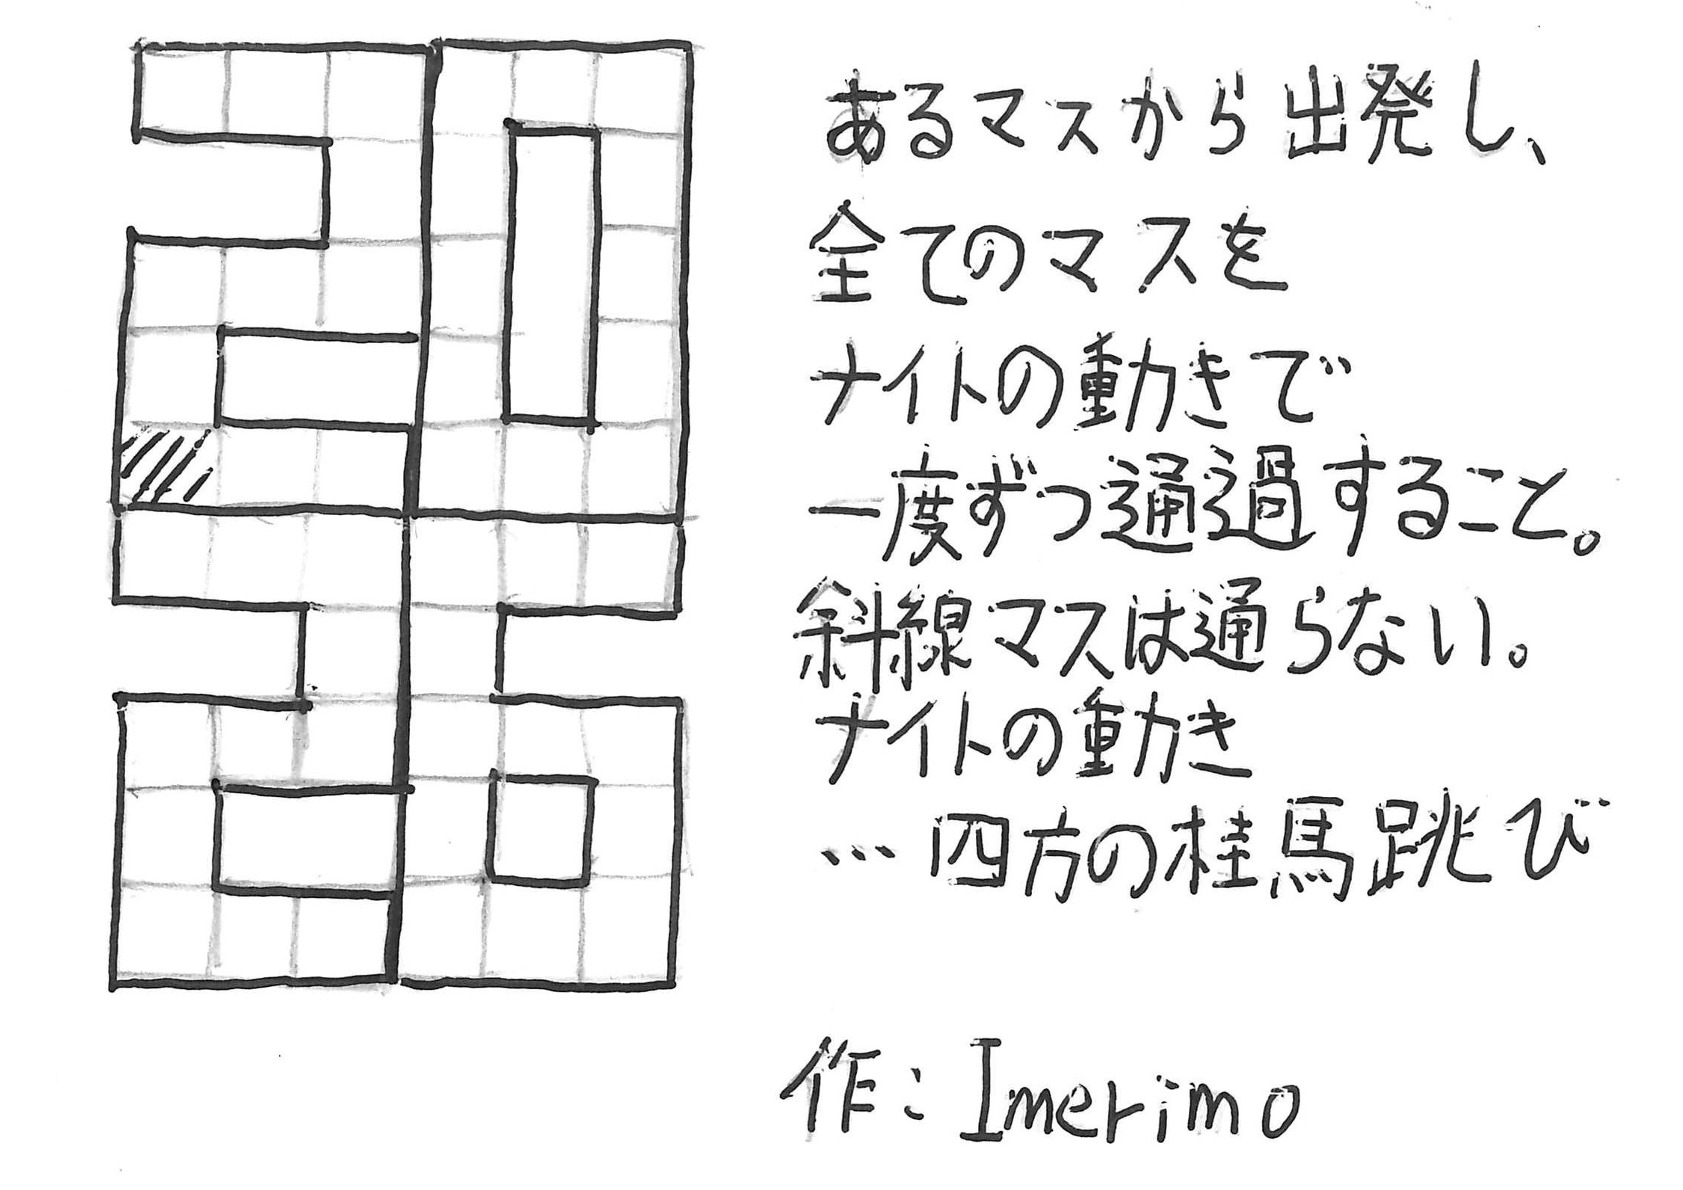 あるマスから出発し、
全てのマスを
ナイトの動きで
一度ずつ通過すること。
斜線マスは通らない。
ナイトの動き
…四方の桂馬跳び
作:Imerimo